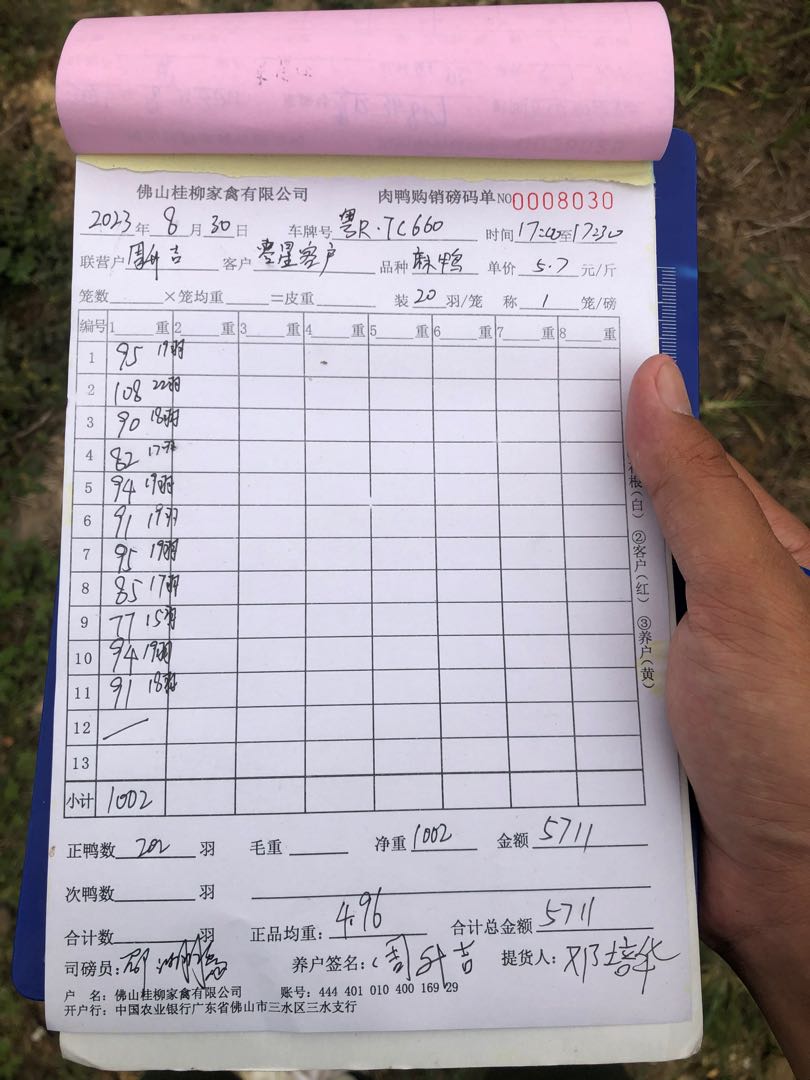 佛山桂柳家禽有限公司 肉鸭购销磅码单 NO 0008030
2023年 8月 30日 车牌号 粤R·TC660 时间 17:00至17:30
联营户 周升吉 客户 零星客户 品种 麻鸭 单价 5.7 元/斤
笼数 ×笼均重 =皮重 装 20 羽/笼 称 1 笼/磅
编号 1 重 2 重 3 重 4 重 5 重 6 重 7 重 8 重
1 95 19羽
2 108 22羽
3 90 18羽
4 82 17羽
5 94 19羽
6 91 19羽
7 95 19羽
8 85 17羽
9 77 15羽
10 94 19羽
11 91 18羽
12
13
小计 1002
正鸭数 202 羽 毛重 净重 1002 金额 5711
次鸭数 羽
合计数 羽 正品均重: 4.96 合计总金额 5711
司磅员: 养户签名: 周升吉 提货人: 邓培华
户 名: 佛山桂柳家禽有限公司 账号: 444 401 010 400 169 29
开户行: 中国农业银行广东省佛山市三水区三水支行
根(白) ②客户(红) ③养户(黄)